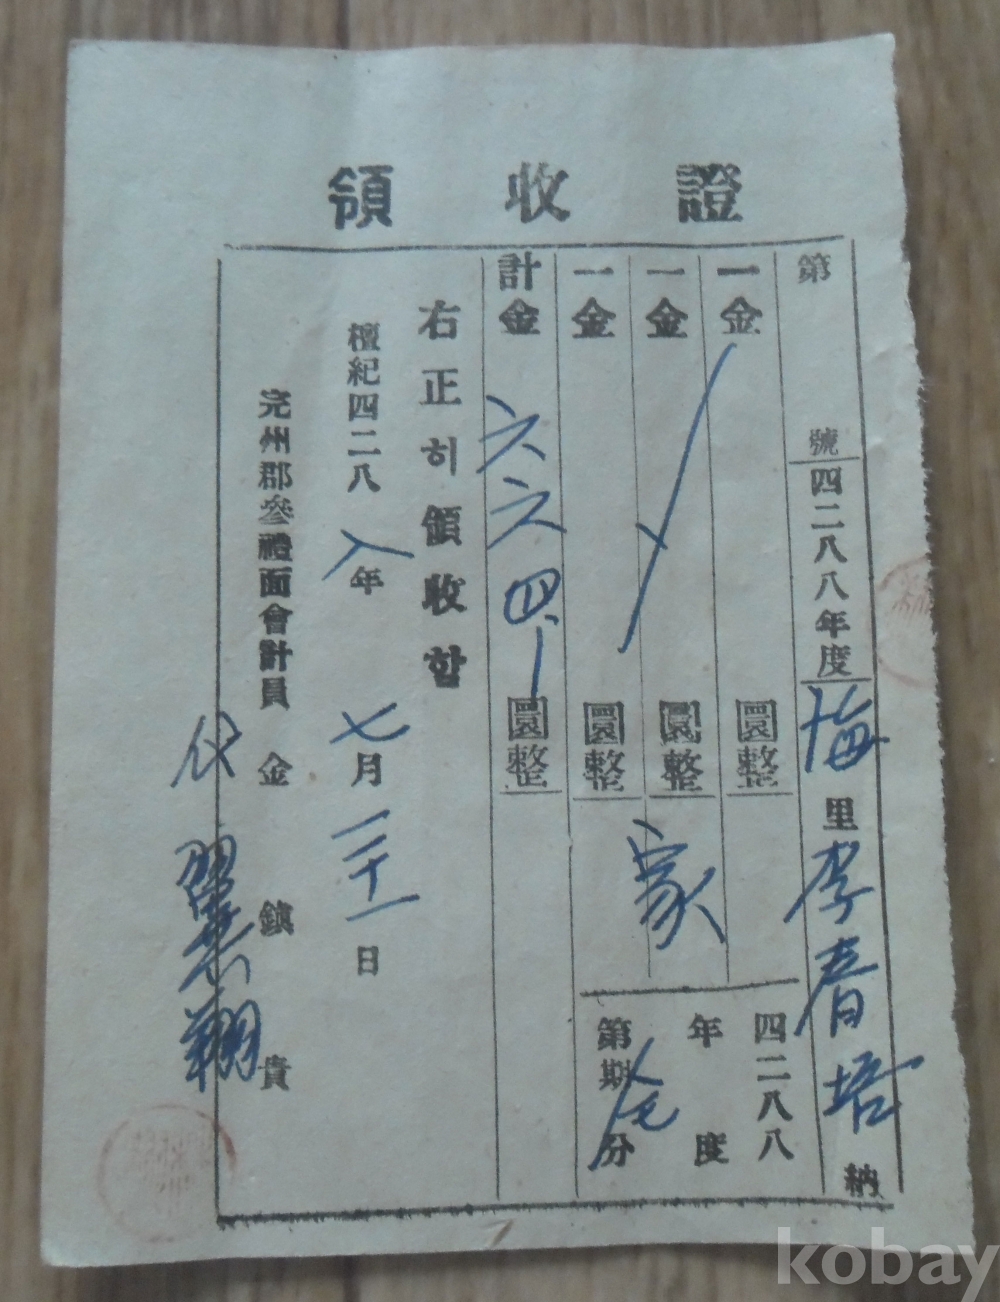 領收證
第 號 四二八八年度 海里 李春培 納
一金 圜整
一金 圜整 家
一金 圜整
四二八八
年度
第 期分 全
計金 六六四、 圜整
右正히領收함
檀紀四二八八年 七月 二十一日
完州郡參禮面會計員 金鎮貴
代 翼翔
kobay